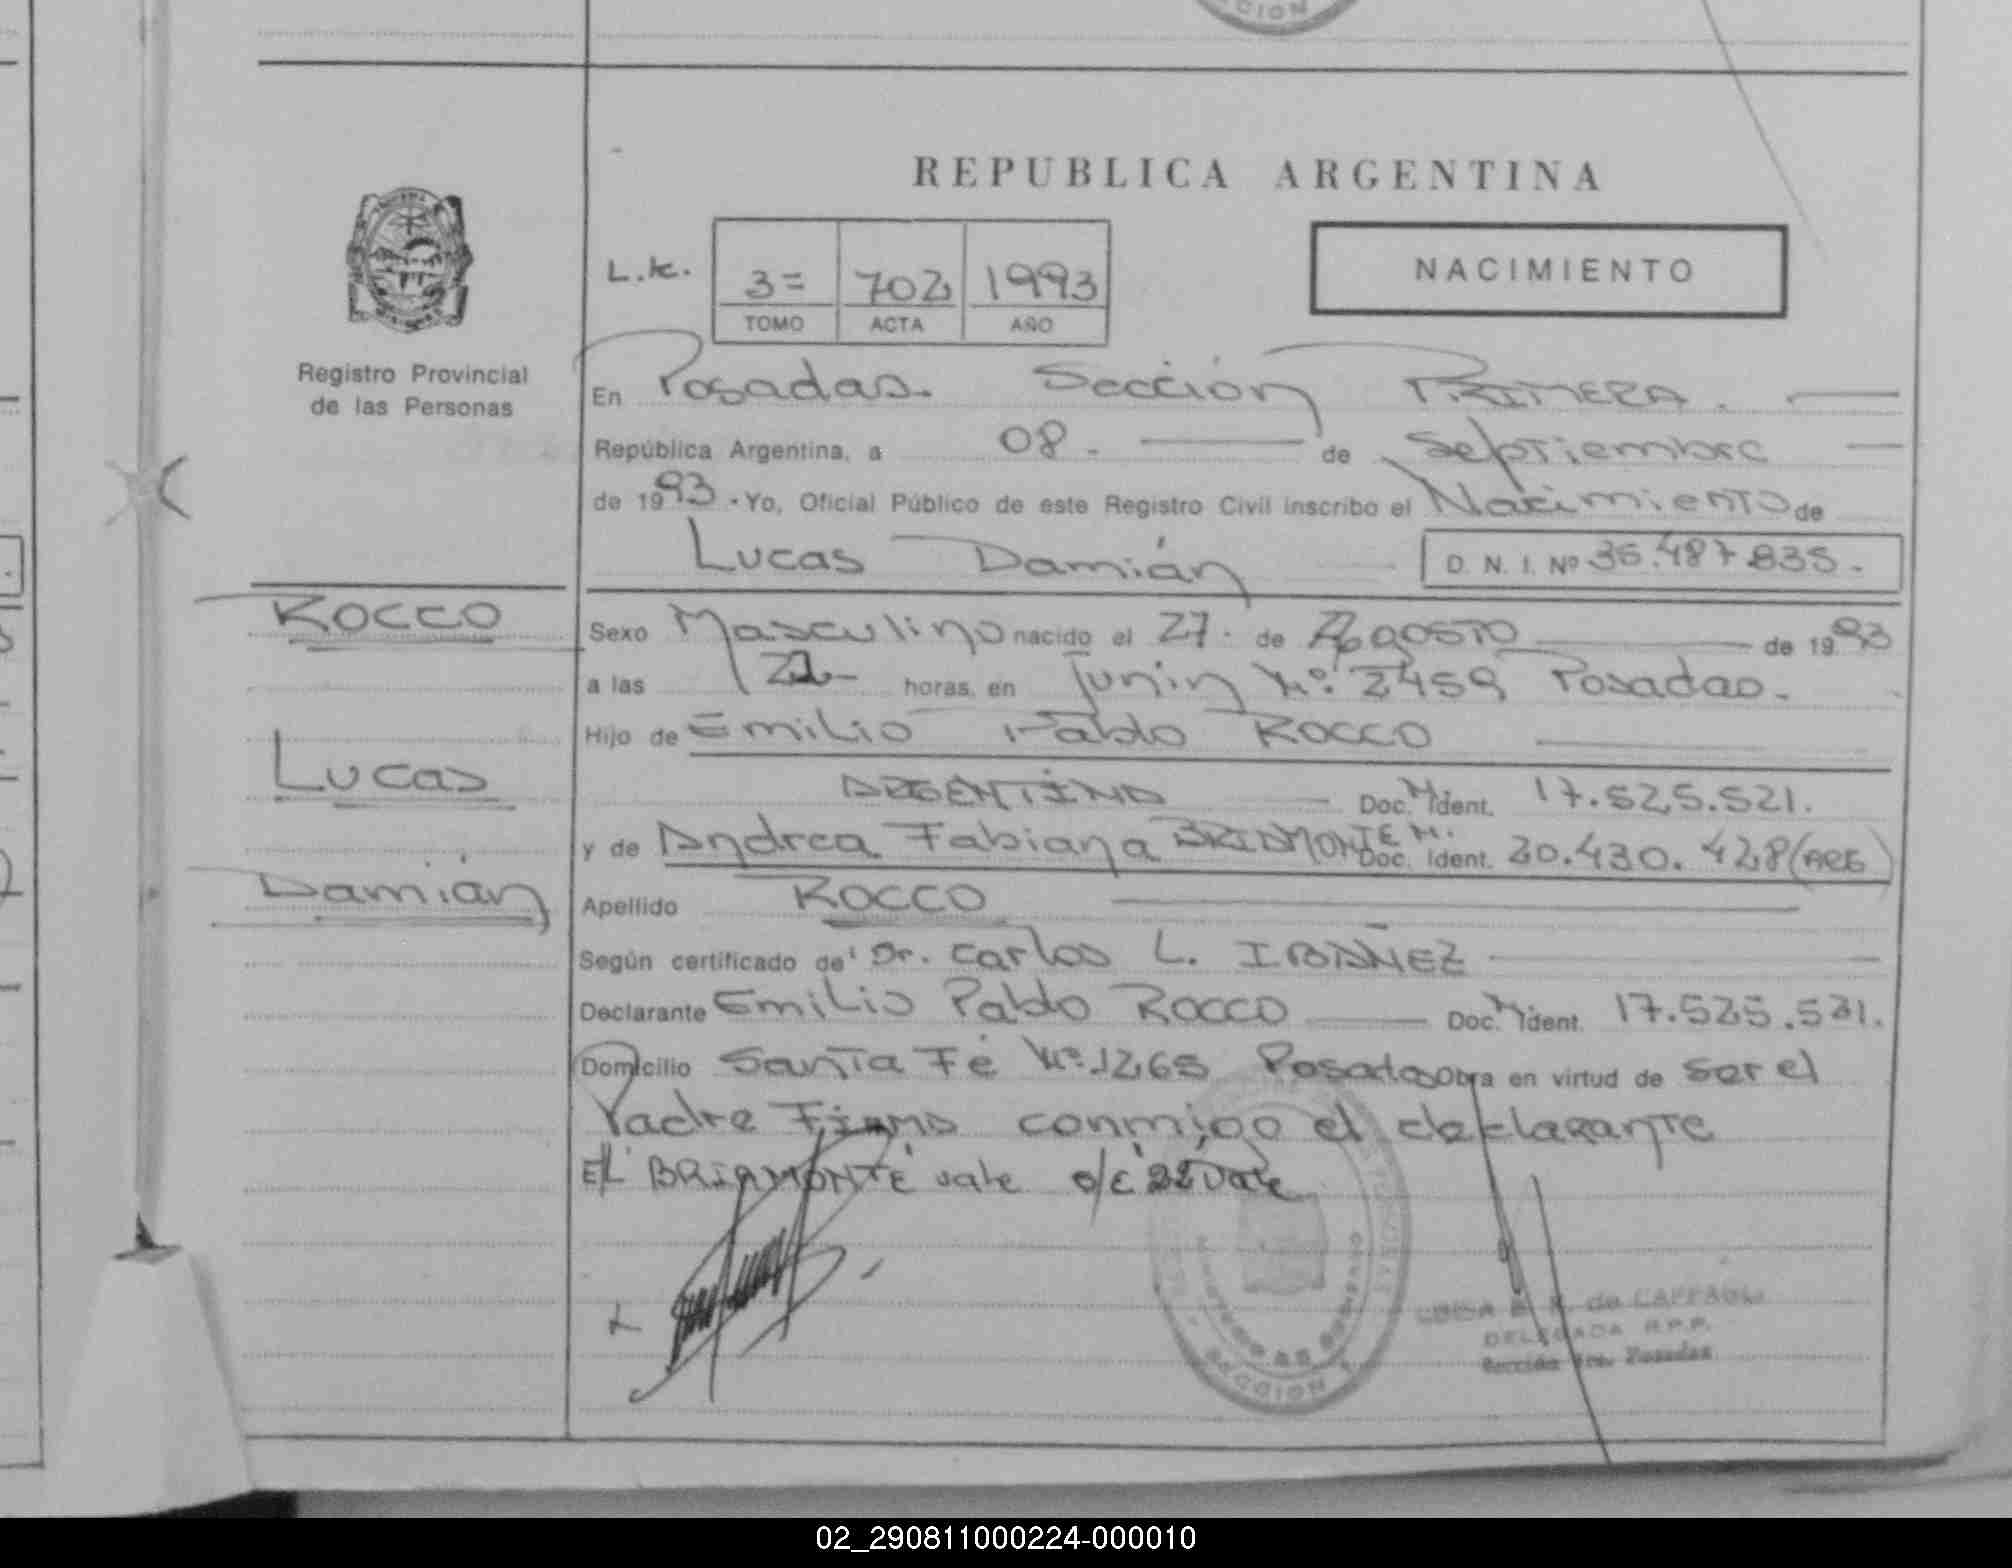 CCION
REPUBLICA ARGENTINA
NACIMIENTO
L.K. 3= 702 1993
TOMO ACTA AÑO
Registro Provincial
de las Personas
En Posadas. Sección PRIMERA.
República Argentina, a 08. de Septiembre
de 1993. Yo, Oficial Público de este Registro Civil inscribo el Nacimiento de
Lucas Damián D. N. I. Nº 36.487.835.
ROCCO
Lucas
Damián
Sexo Masculino nacido el 27. de Agosto de 1993
a las 22 horas, en Junín Nº. 2459 Posadas.
Hijo de Emilio Pablo ROCCO
ARGENTINO Doc. M. Ident. 17.525.521.
y de Andrea Fabiana BRIAMONTE M. Doc. Ident. 20.430.428 (ARG)
Apellido ROCCO
Según certificado de Dr. Carlos L. IBAÑEZ
Declarante Emilio Pablo ROCCO Doc. M. Ident. 17.525.521.
Domicilio Santa Fé Nº. 1265 Posadas Obra en virtud de ser el
Padre Firma conmigo el declarante
E/L BRIAMONTE vale s/c 22 Vale
SECCION
de CAFFAGLI
DELEGADA R.P.P.
Sección 1ra. Posadas
02_290811000224-000010